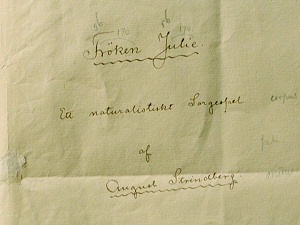 Fröken Julie.
Ett naturalistiskt Sorgespel
af
August Strindberg.